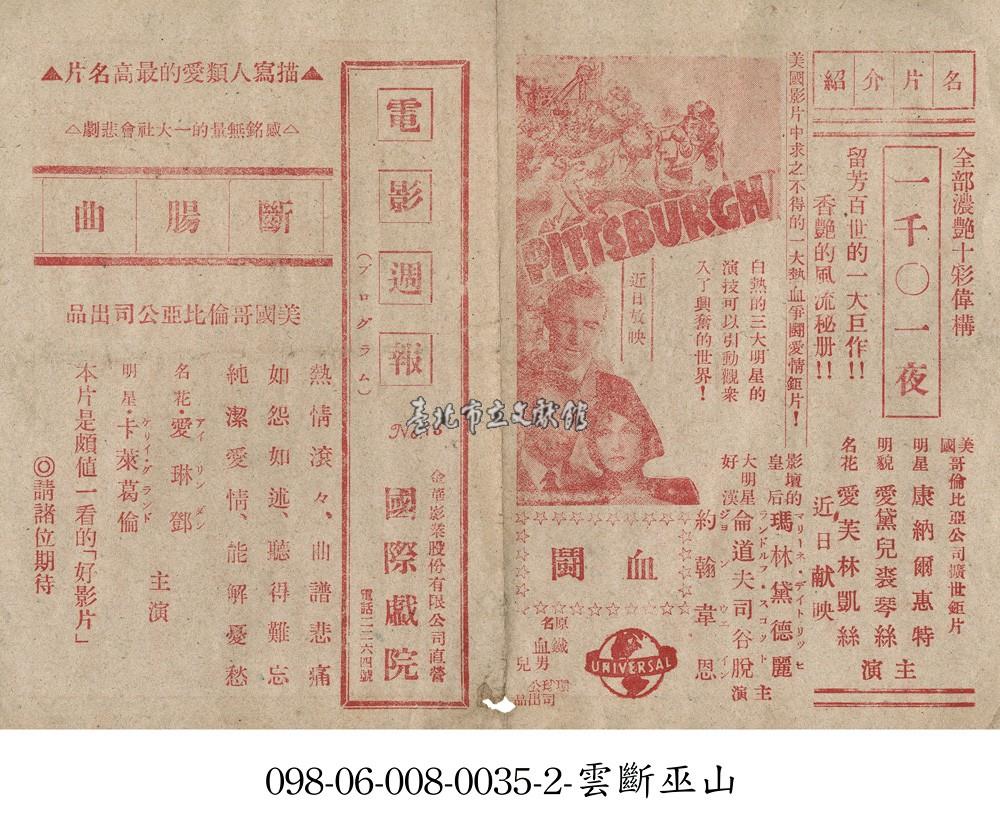 名片介紹
全部濃艷十彩偉構
一千〇一夜
留芳百世的一大巨作!!
香艷的風流秘册!!
美國哥倫比亞公司擴世鉅片
明星 康納爾惠特
明貌 愛黛兒裘琴絲
名花 愛芙林凱絲
主演
近日献映
美國影片中求之不得的一大熱血爭鬪愛情鉅片!
白熱的三大明星的
演技可以引動觀衆
入了興奮的世界!
PITTSBURGH
近日放映
影壇的皇后 瑪林黛德麗
マリーネ・デイトリッヒ
大明星 倫道夫司谷脫
ランドルフ・スコット
好漢 約翰韋恩
ジョン ウエイン
主演
血鬪
原名
鐵血男兒
環球公司出品
UNIVERSAL
電影週報
(プログラム)
No.
金華影業股份有限公司直營
國際戲院
電話二二六四號
▲描寫人類愛的最高名片▲
△感銘無量的一大社會悲劇△
斷腸曲
美國哥倫比亞公司出品
熱情滾々、曲譜悲痛
如怨如述、聽得難忘
純潔愛情、能解憂愁
名花・愛琳鄧
アイリンダン
明星・卡萊葛倫
ケリイ・グランド
主演
本片是頗值一看的「好影片」
◎請諸位期待
臺北市立文獻館
098-06-008-0035-2-雲斷巫山